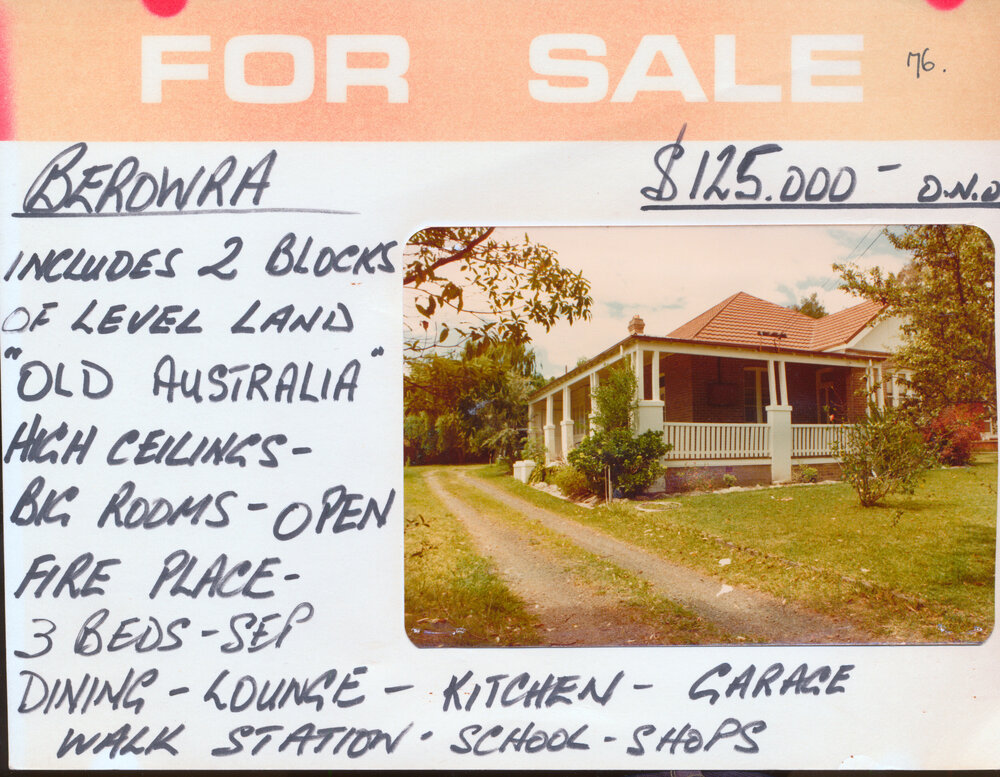 FOR SALE
76.
BEROWRA
$125.000 - O.N.O
INCLUDES 2 BLOCKS
OF LEVEL LAND
"OLD AUSTRALIA"
HIGH CEILINGS-
BIG ROOMS - OPEN
FIRE PLACE-
3 BEDS - SEP
DINING - LOUNGE - KITCHEN - GARAGE
WALK STATION - SCHOOL - SHOPS